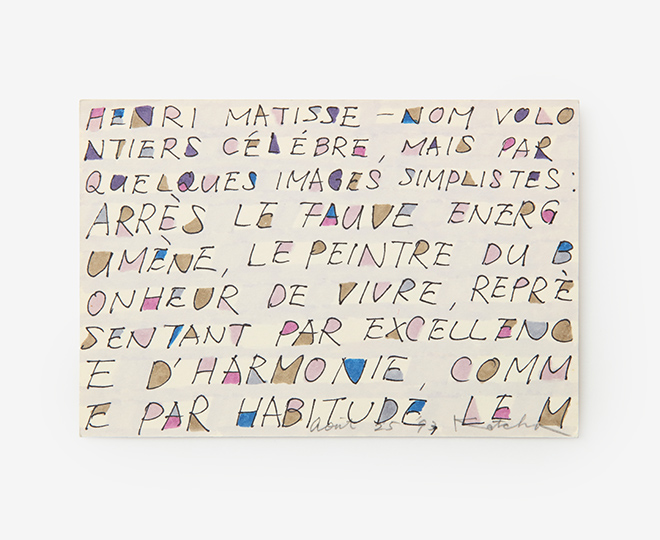 HENRI MATISSE – NOM VOLO
NTIERS CÉLÉBRE, MAIS PAR
QUELQUES IMAGES SIMPLISTES:
ARRÈS LE FAUVE ENERG
UMÈNE, LE PEINTRE DU B
ONHEUR DE VIVRE, REPRÈ
SENTANT PAR EXCELLENC
E D'HARMONIE, COMM
E PAR HABITUDE, LE M
25 93